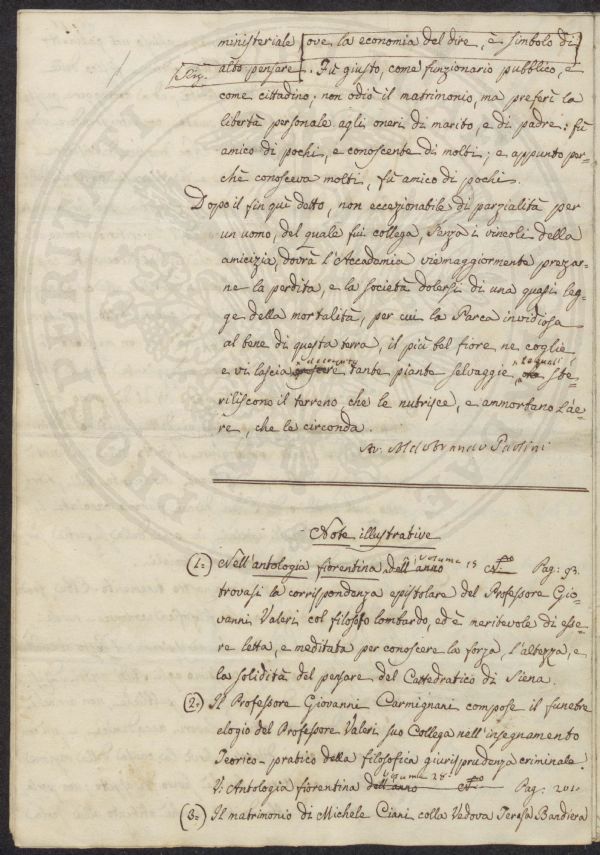 ministeriale [ove la economia del dire, è simbolo di
alto pensare]. Fù giusto, come funzionario pubblico, e
come cittadino; non odiò il matrimonio, ma preferì la
libertà personale agli oneri di marito, e di padre: fù
amico di pochi, e conoscente di molti; e appunto per-
chè conosceva molti, fù amico di pochi.
Dopo il fin quì detto, non eccezionabile di parzialità per
un uomo, del quale fui collega, senza i vincoli della
amicizia, dovrà l'Accademia viemaggiormente prezar-
ne la perdita, e la società dolersi di una quasi leg-
ge della mortalità, per cui la Parca invidiosa
al bene di questa terra, il più bel fiore ne coglie
e vi lascia tante piante selvaggie, le quali ste-
riliscono il terreno che le nutrisce, e ammorbano l'ae-
re, che le circonda.
Av. Aldobrando Paolini
Note illustrative
(1.) Nell'antologia fiorentina dell'anno Volume 18 N.ro Pag: 93.
trovasi la corrispondenza epistolare del Professore Gio-
vanni Valeri col filosofo lombardo, ed è meritevole di esse-
re letta, e meditata per conoscere la forza, l'altezza, e
la solidità del pensare del Cattedratico di Siena.
(2.) Il Professore Giovanni Carmignani compose il funebre
elogio del Professore Valeri suo Collega nell'insegnamento
Teorico-pratico della filosofica giurisprudenza criminale.
V: Antologia fiorentina dell'anno Volume 28. N.ro Pag: 201.
(3.) Il matrimonio di Michele Ciani colla Vedova Teresa Bandiera